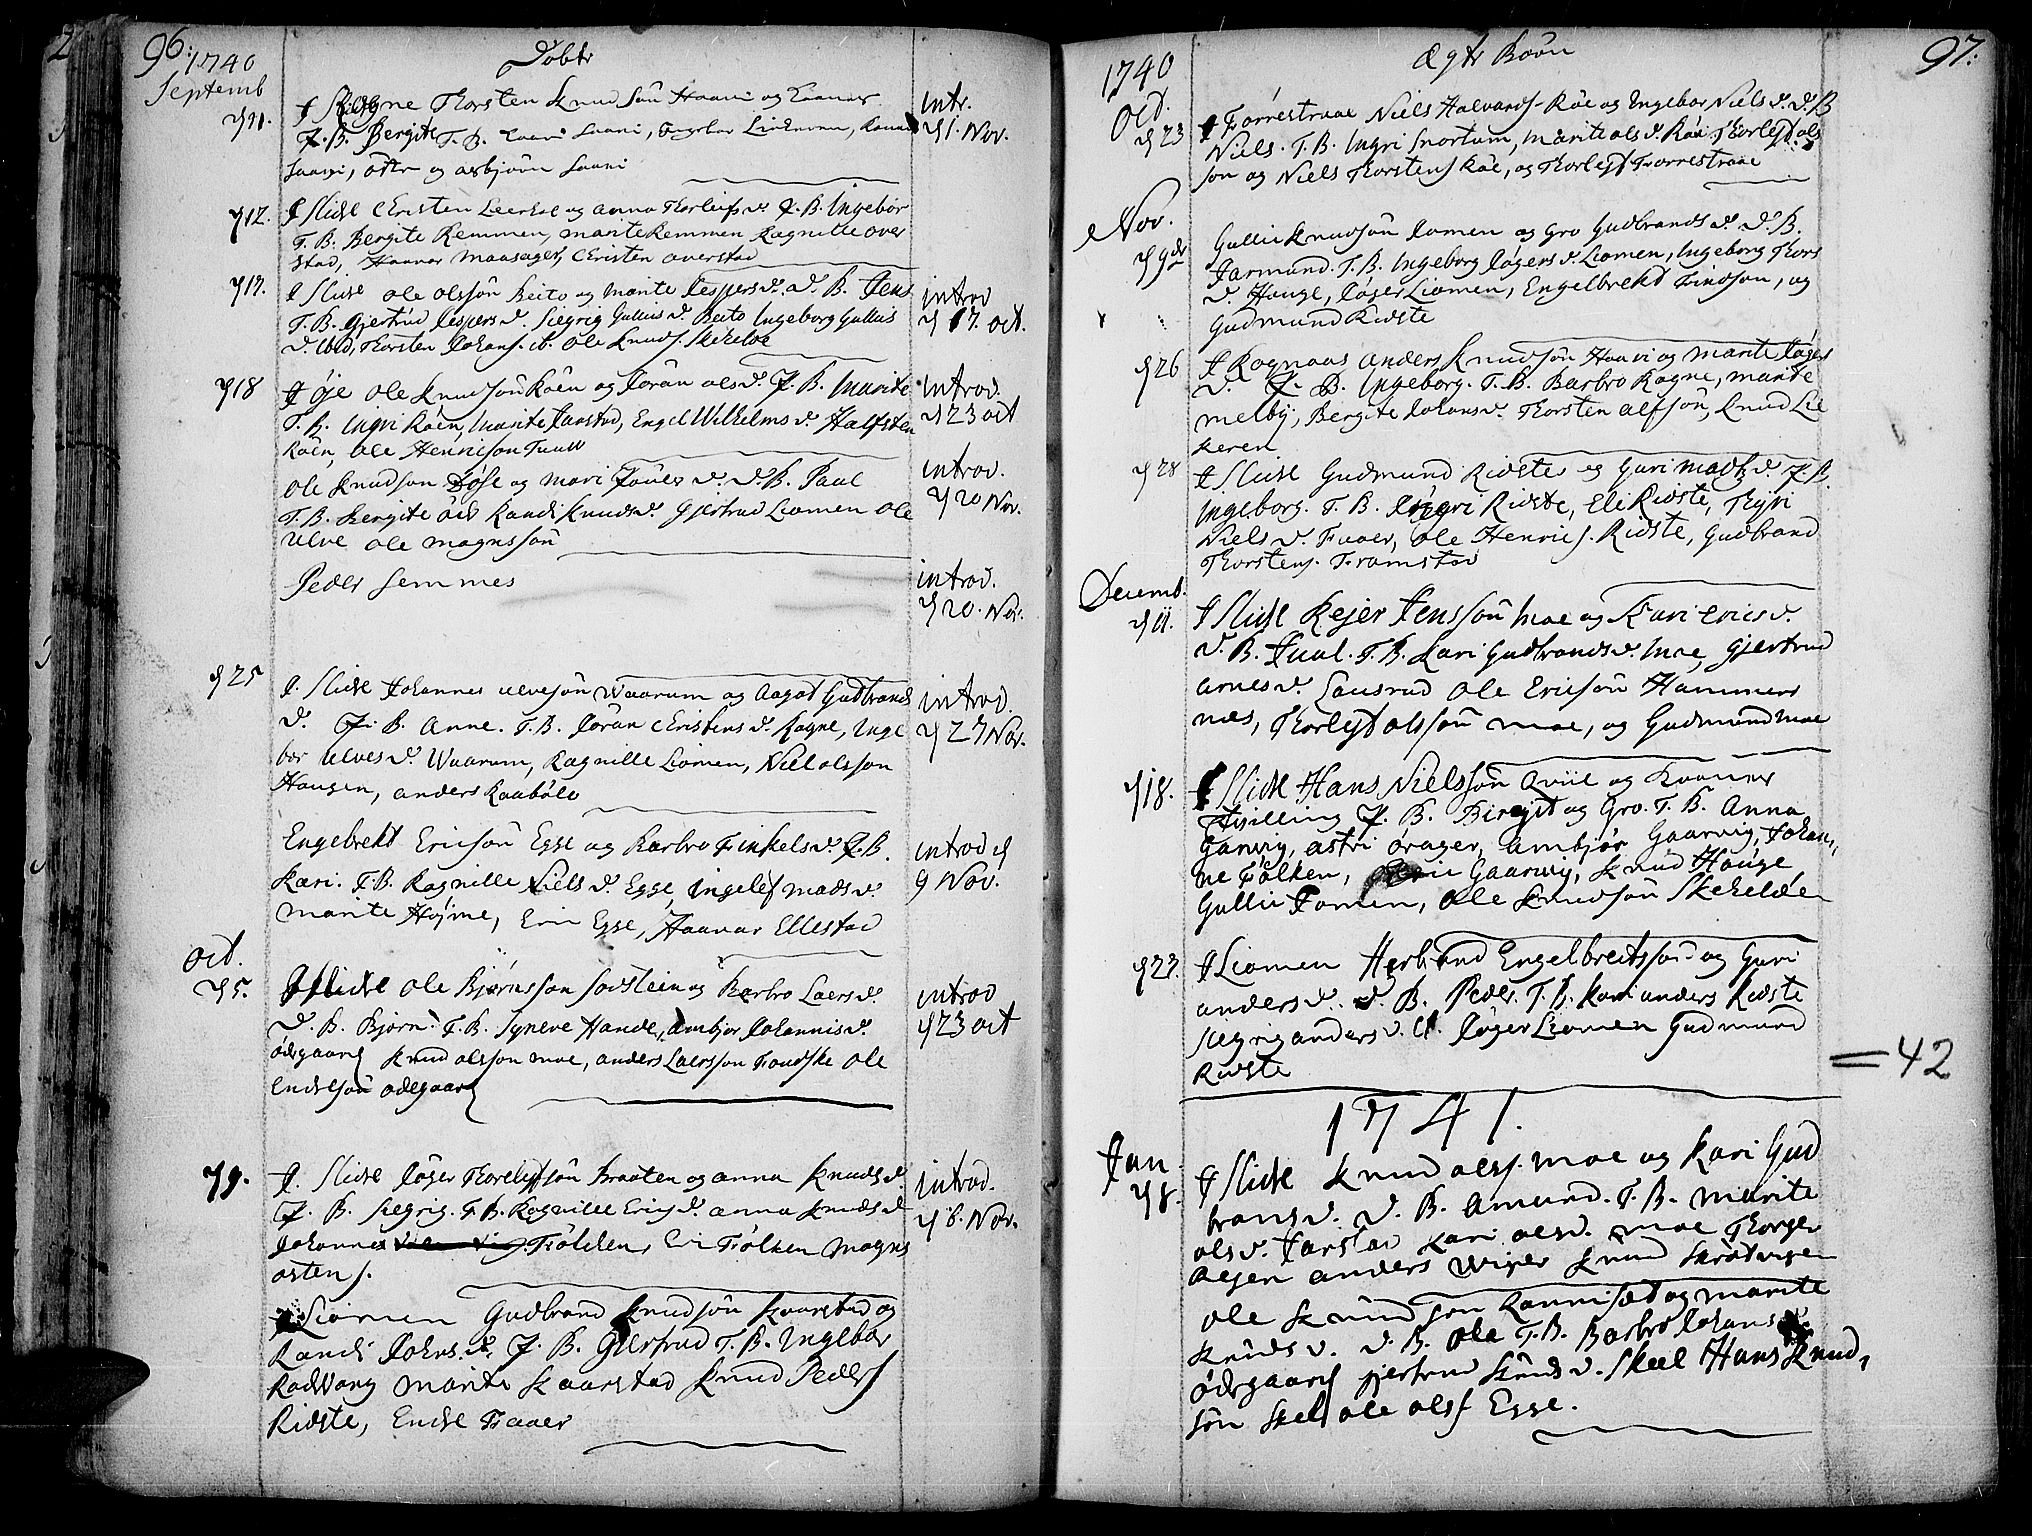 96:
1740
Döbte
Septemb
d 11.
J Rogne Thorsten Knudsön Haavi og
P. B. Bergite T. B. Laavi,
intr.
d 1. Nov.
Laavi, og asbjörn Laavi
d 12.
J Slidre Christen Leerhol og anna Thorleifs d. P. B. Ingebor
T. B. Bergite Remmen, marite Remmen Ragnille over
stad, Haavar Maasager, Christen averstad
d 17.
J Slidre ole olssön beito og marite Jespers d. d. B. Jens
T. B. Gjertrud Jespers d. Siegrig Gullics d. Beito Ingeborg Gullics
d. ibid, Thorsten Johans. ib. ole Knuds. Skekelöe
introd
d 17. oct.
d 18
J öje ole Knudsön Röen og Joran ols d. P. B. Marite
T. B. Ingri Röen, Marite Jarstad, Engel Wilhelms d. Halfsten
Röen, ole Henricson
introd.
d 23 oct
ole Knudsön Döse og mari d. d. B. Paul
T. B. bergite Randi Knuds d. Gjertrud Liomen ole
ulve ole magnssön
introd.
d 20 Nov.
Peder Semmes
introd.
d 20. Nov.
d 25
J. Slidre Johannes ulvesön Waarum og Aagot Gudbrands
d. P. B. Anne. T. B. Joran Christens d. Rogne, Inge
bor ulves d. Waarum, Ragnille Liomen, Niel olsson
Haugen, anders Raaböle
introd.
d 27 Nov.
Engebrekt Ericsön Egge og Barbro Finkels d. P. B.
Kari. T. B. Ragnille Niels d. Egge, Ingelef mads d.
marite Höjme, Erin Egge, Haavar Ellestad
introd d
9 Nov.
Oct.
d 5.
J Slidre ole Björnsson sodstein og Barbro Laers d.
d. B. Björn. T. B. Syneve Hande, ambjor Johannis d.
ödegaard Knud olsson moe, anders Laersson Fondske ole
Endresön ödegaard
introd
d 23 oct
d 9.
J. Slidre Jöger Thorleifsön braaten og anna Knuds d.
P. B. Siegrig. T. B. Ragnille Erics d. anna Knuds d
Johannes Fölcken, Eri Fölken Magns
ostens.
introd.
d 6. Nov.
J Liomen Gudbrand Knudsön Kvarstad og
Randi Johns d. P. B. Gjertrud T. B. Ingebor
Rodvang marite Kaarstad Knud Peders
Ridste, Endre Fauer
97.
1740
Ægte Börn
Oct.
d 23
J Forrestraae Niels Halvards Röe og Ingebor Niels d. d. B
Niels. T. B. Ingri Snortum, marite ols d. Röe Thorlef ols
son og Niels Thorstens Röe, og Thorlef Forrestraae
Nov.
d 9de
Gullic Knudsön Lomen og Gro Gudbrands d. d. B.
Jarmund. T. B. Ingeborg Jögers d. Liomen, Ingeborg Thors
d. Hauge, Jöger Liomen, Engelbrekt Findson, og
Gudmund Ridste
d 26
J Rognaas anders Knudsön Haavi og marite Jögers
d. P. B. Ingeborg. T. B. Barbro Rogne, marite
melby, Bergite Johans d. Thorsten alfsön, Knud Lie
keren
d 28
J Slidre Gudmund Ridste og Guri mads d. P. B.
Ingeborg. T. B. Siegri Ridste, Eli Ridste, Thyri
Niels d. Fauer, ole Henrics. Ridste, Gudbrand
Thorstens. Framstad
Decemb.
d 11.
J Slidre Rejer Jenssön moe og Kari Erics d.
d. B. Juul. T. B. Kari Gudbrands d. moe, Gjertrud
arnes d. Lausrud ole Ericsön Hammers
næs, Thorlef olssön moe, og Gudmund moe
d 18.
J Slidre Hans Nielssön Qviil og Kvaner
P. B. Birgit og Gro. T. B. Anna
Garvig, astri örager, ambjör Gaarvig, Johan,
ne Fölken, Gaarvig, Knud Hauge
Gullic Fomen, ole Knudsön Skekelöe
d 27.
J Liomen Herbrand Engelbreitssön og Guri
anders d. d. B. Peder. T. B. Kari anders Ridste
siegrig anders d. ib. Jöger Liomen Gudmund
Ridste
= 42
1741.
Jan.
d 8.
J Slidre Knud olss. moe og Kari Gud
brands d. d. B. Amund. T. B. marite
ols d. Jarstad Kari ols d. moe Thorger
anders Knud
ole Knudson Rannisæt og marite
Knuds d. d. B. ole T. B. Barbro Johans
ödegaard gjertrud Knuds d. Skeel Hans Knud,
sön Skel ole ols Egge.